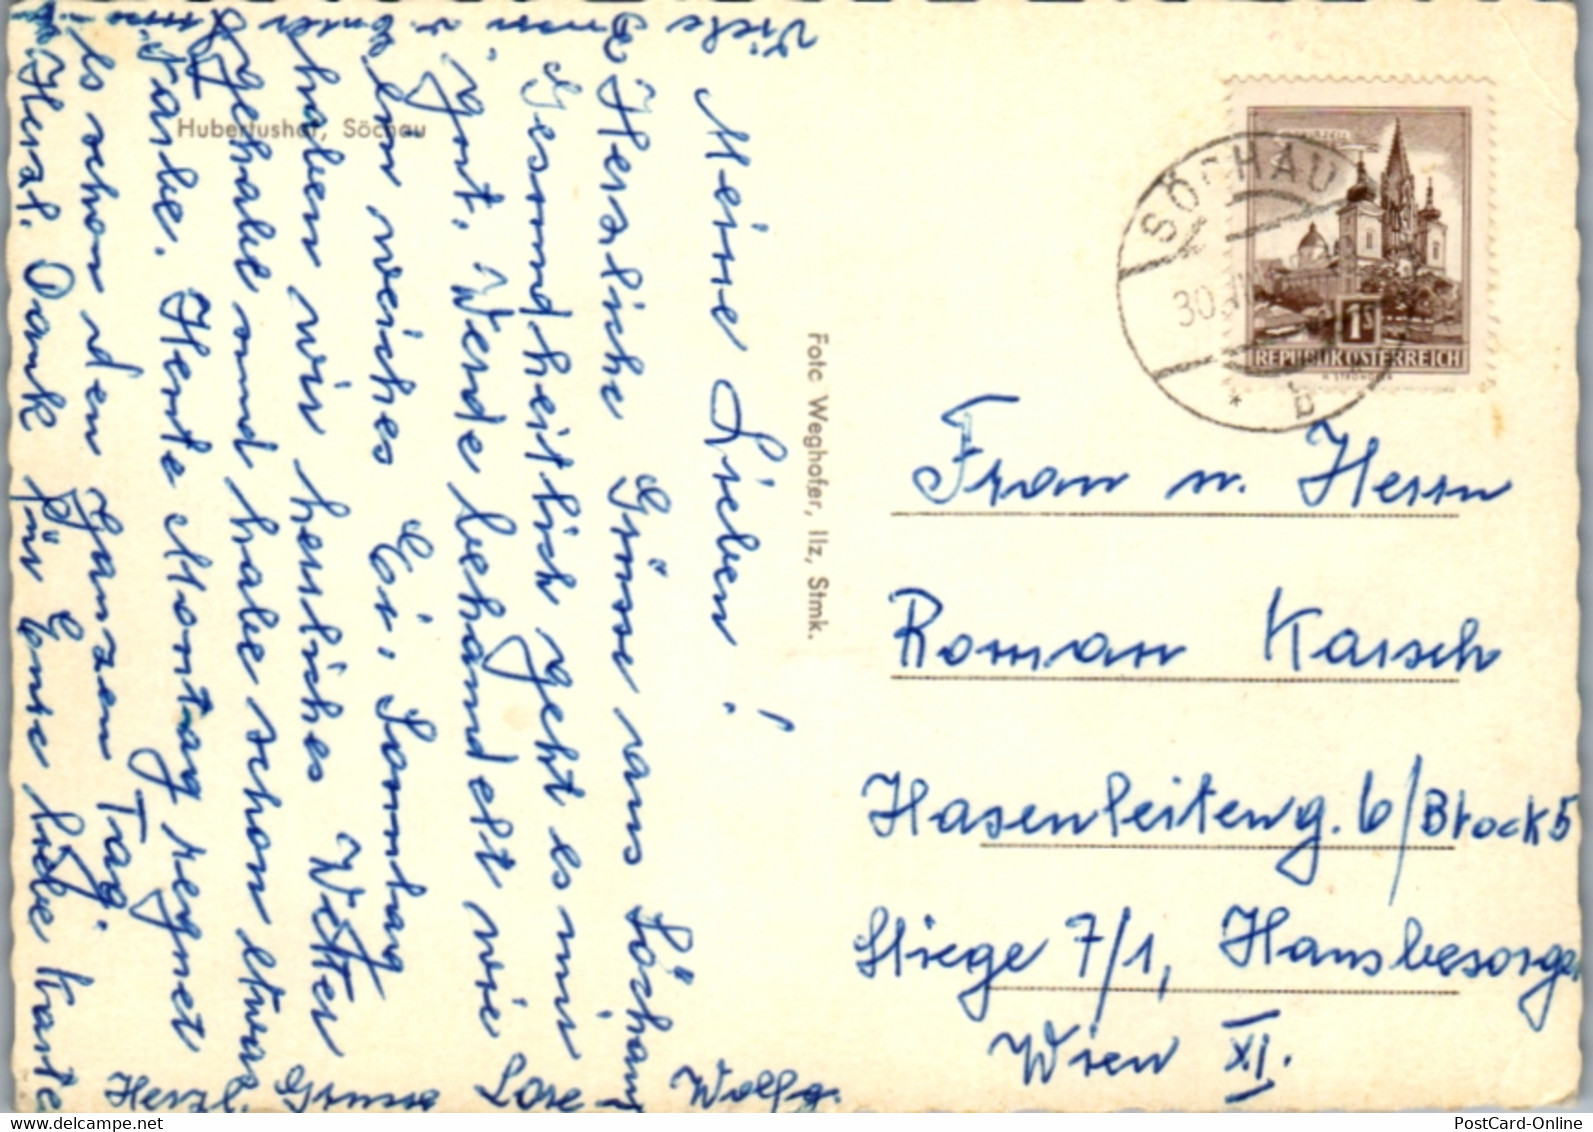 Hubertushof, Söchau
Meine Lieben!
Herzliche Grüsse aus Söchau
Gesundheitlich geht es mir
gut. Werde behandelt wie
ein weiches Ei, Sonntag
haben wir herrliches Wetter
gehabt und habe schon etwas
Farbe. Heute Montag regnet
es schon den ganzen Tag.
Herzl. Dank für Eure liebe Karte
Viele
Herzl. Grüsse Lore Wolfg.
Foto Weghofer, Ilz, Stmk.
SÖCHAU
30.
* b
1S
REPUBLIK ÖSTERREICH
Frau u. Herrn
Roman Karsch
Hasenleiteng. 6/Block 5
Stiege 7/1, Hausbesorger
Wien XI.
PostCard-Online